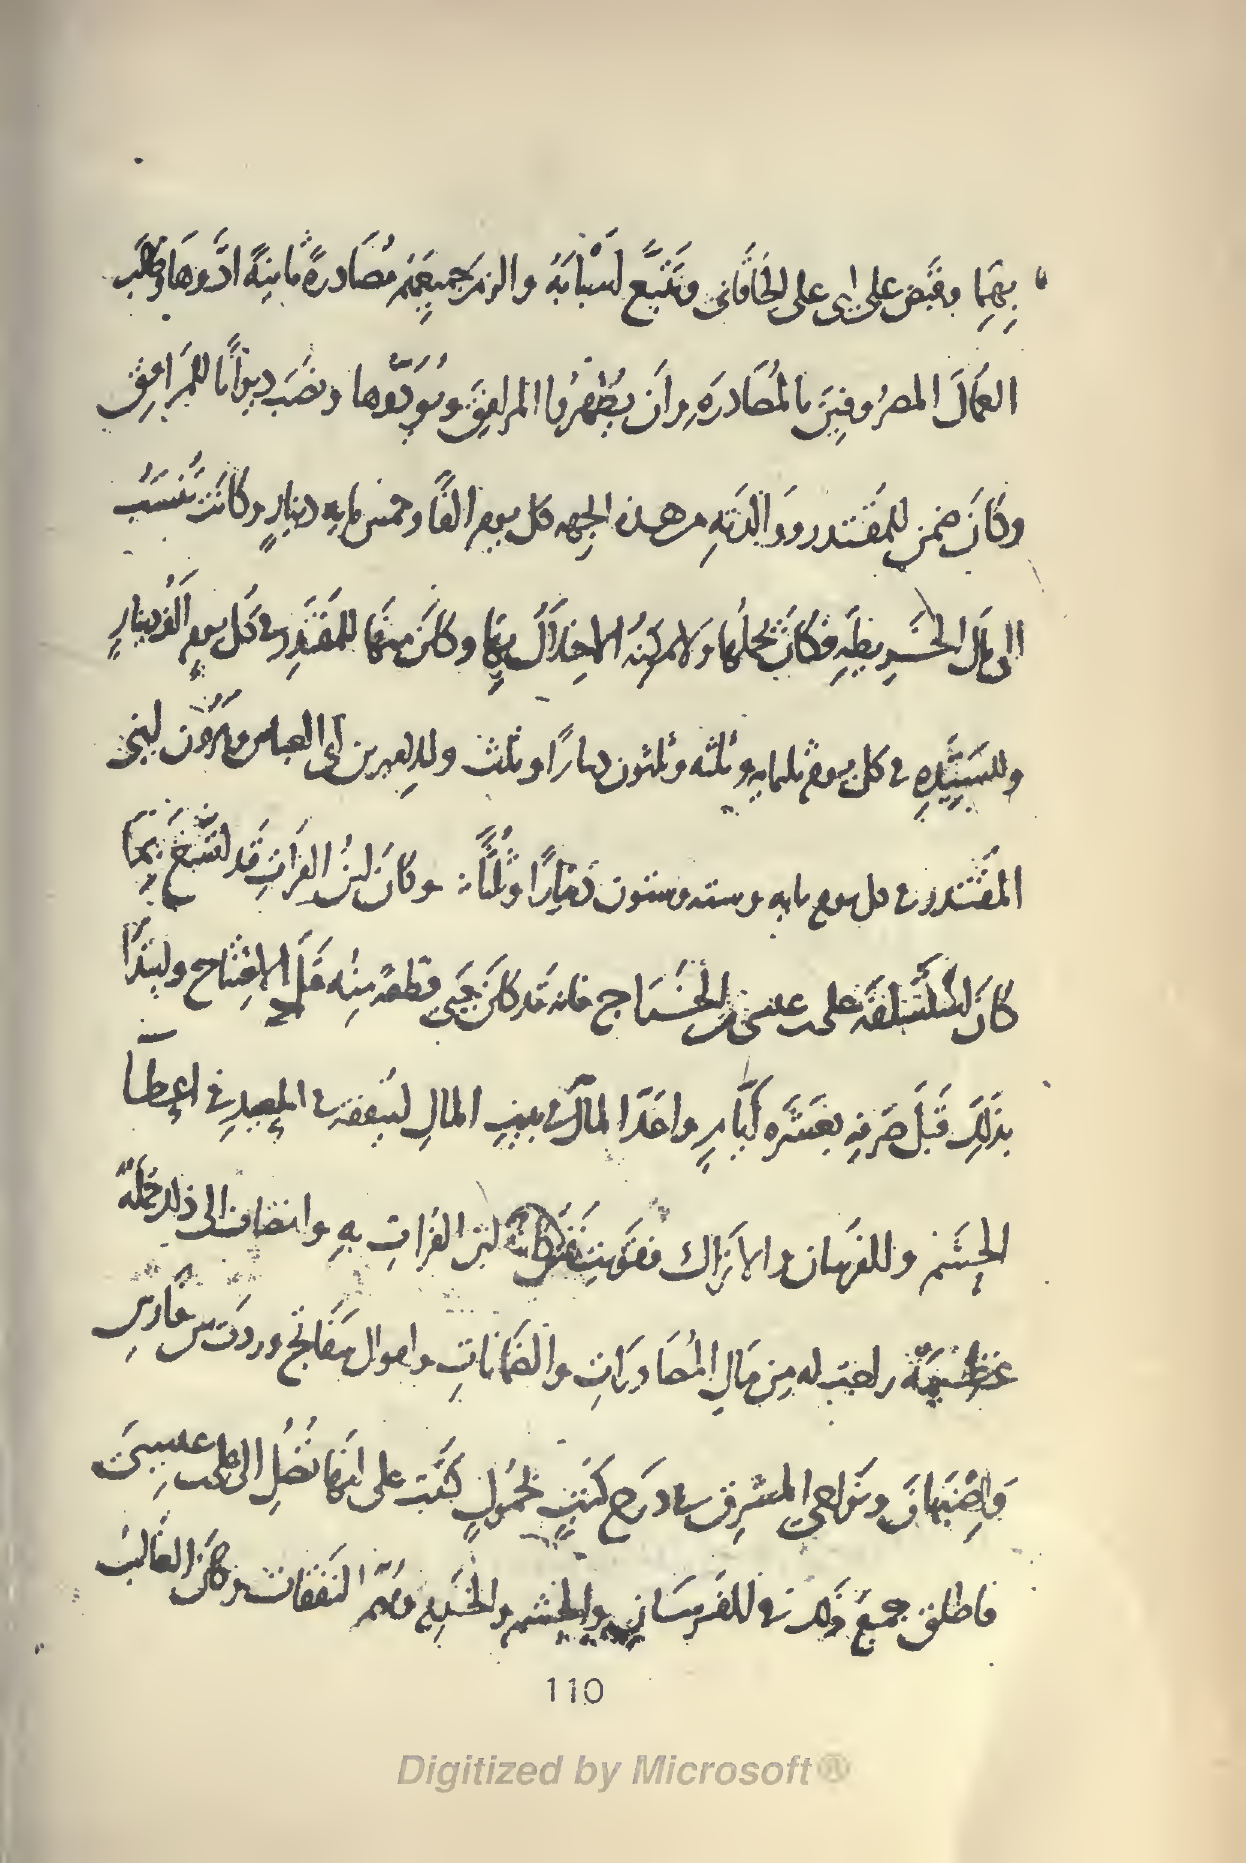 بهما وقبض على ابى على الخاقانى وتتبع اسبابه والزم جميعهم مصادرةً ثانيةً ادّوها وطالب
العمّال المصروفين بالمصادره وان يظهروا المرافق ويودّوها ونصب ديوانًا للمرافق
وكان ضمن للمقتدر ووالدته من هذه الجهه كل يوم الفًا وخمس مايه دينارٍ وكانت تنسب
الى مال الخريطه فكان يحملها ولا يمكنه الاخلال بها وكان منها للمقتدر فى كل يوم الف دينارٍ
وللسيّده فى كل يوم ثلثمايه وثلثه وثلثون دينارًا وثلث وللاميرين ابى العباس وهرون ابنى
المقتدر فى كل يوم مايه وسته وستون دينارًا وثلثًا وكان ابن الفرات قد اتسع بما
كان استسلفه على بن عيسى من الخراج فانه قد كان جبى قطعه منه قبل الافتتاح وابتدا
بذلك قبل صرفه بعشره ايّام واعدّ المال فى بيت المال لينفقه فى العيد فى اعطا
الحشم وللفرسان والاتراك فقويت نفس ابن الفرات به وانضاف الى ذلك جملة
عظيمة راجت له من مال المصادرات والضمانات واموال سفاتج وردت من فارس
واصبهان ونواحى المشرق فى درج كتب بحمول كتبت على انها تصل الى على بن عيسى
فاطلق جميع ذلك فى للفرسان والحشم والخدم ومهمّ النفقات وكان الغالب
110
Digitized by Microsoft®